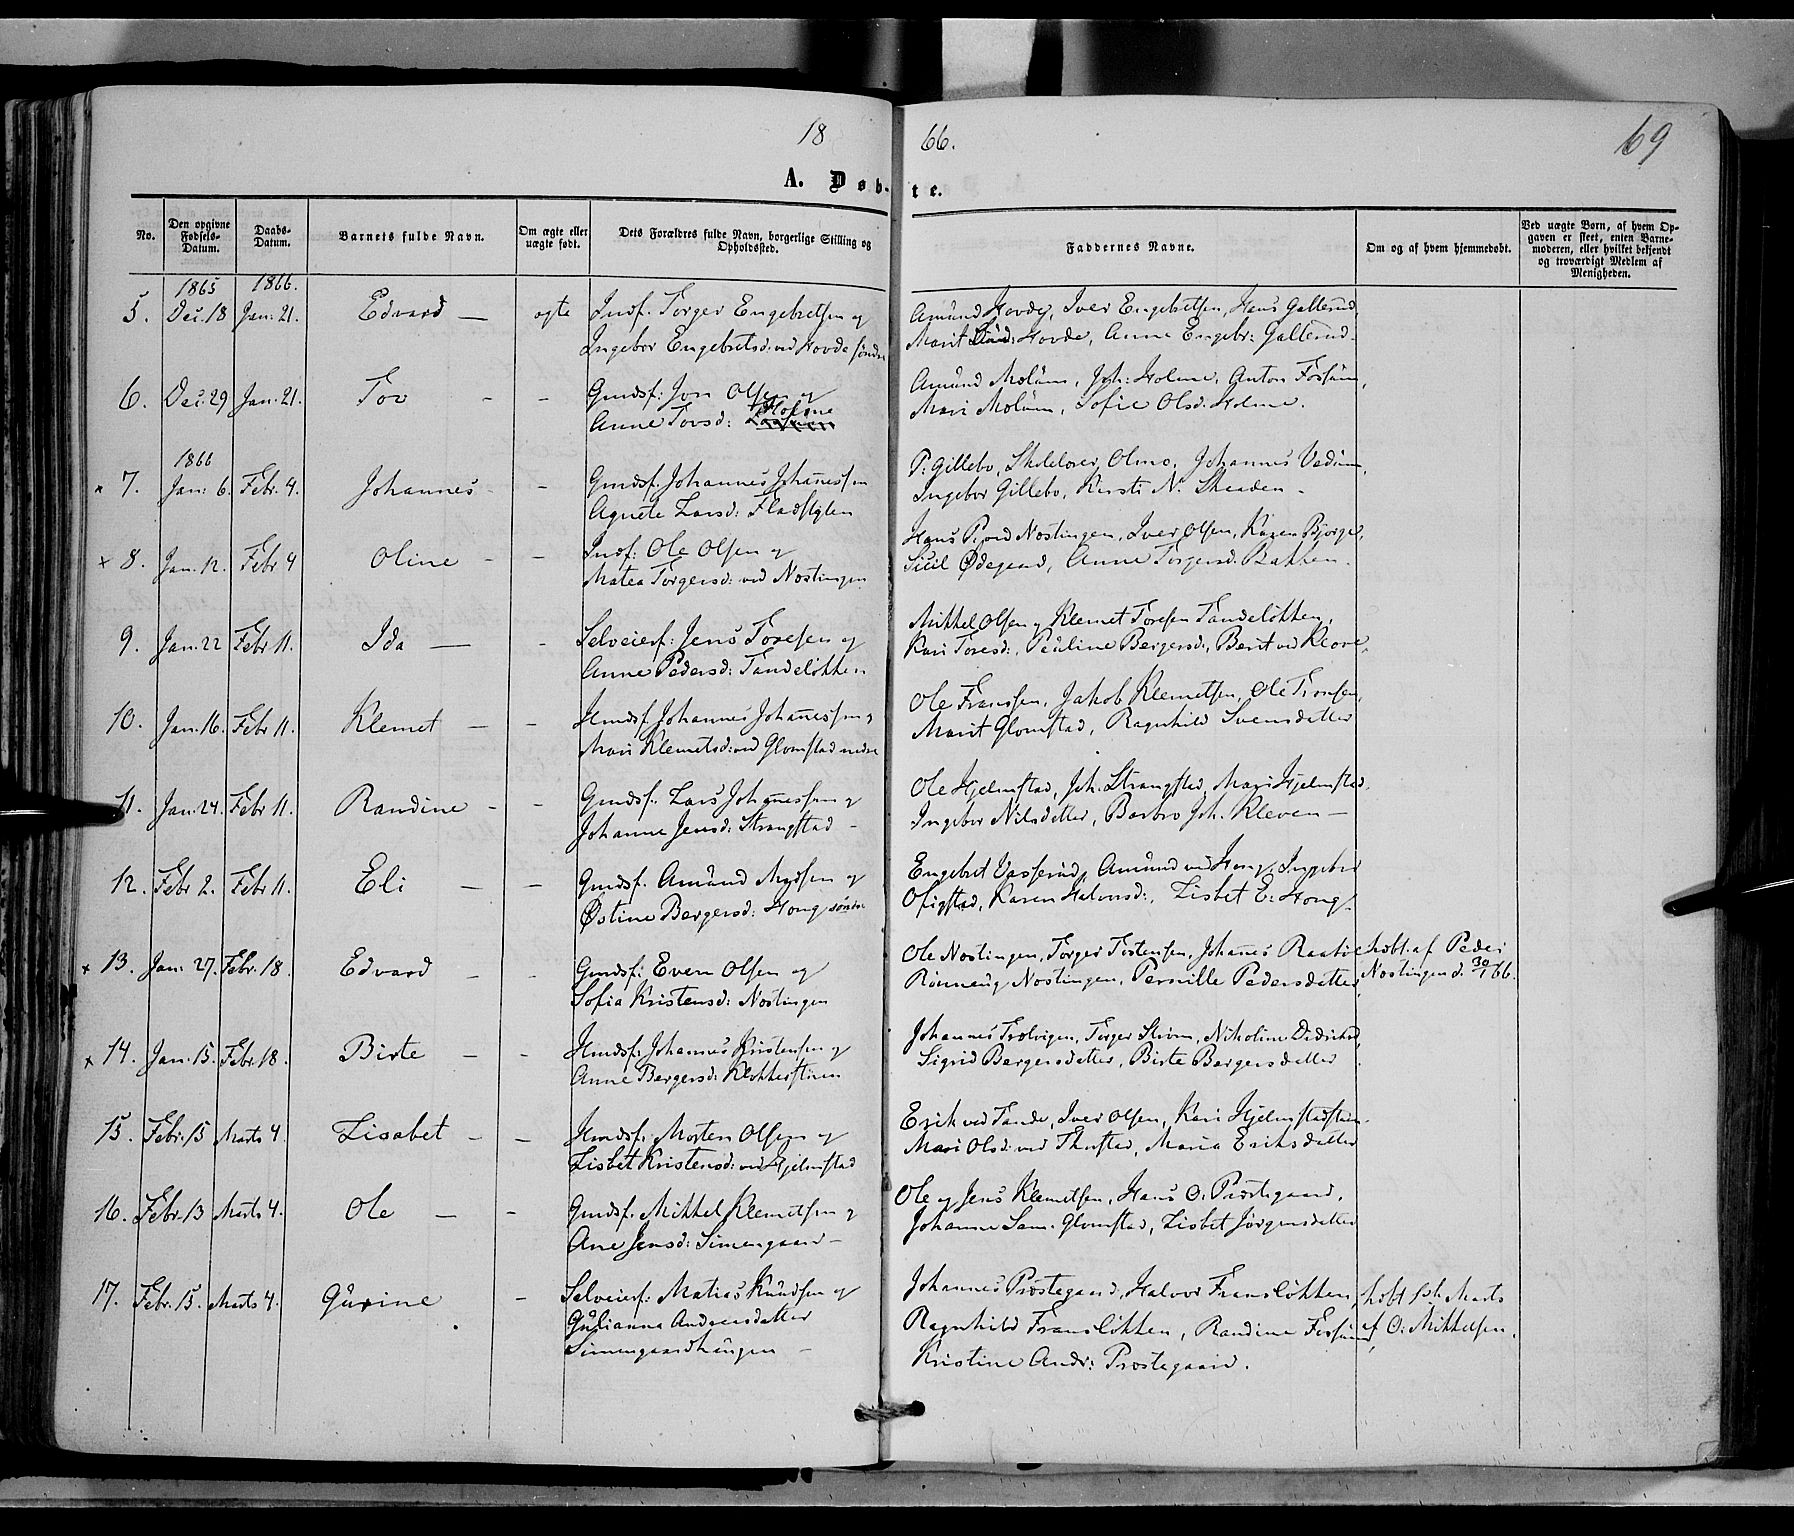 18 66. 69
A. Døbte.
No. Den opgivne Fødsels-Datum. Daabs-Datum. Barnets fulde Navn. Om ægte eller uægte født. Dets Forældres fulde Navn, borgerlige Stilling og Opholdssted. Faddernes Navne. Om og af hvem hjemmedøbt. Ved uægte Børn, af hvem Opgaven er skeet, enten Barnemoderen, eller hvilket bekjendt og troværdigt Medlem af Menigheden.
1865 1866.
5. Dec. 18 Jan: 21. Edvard — ægte Indf. Torger Engebretsen og Amund Hovde, Iver Engebretsen, Hans Galterud,
Ingebor Engebretsd: ved Hovde søndre Marit Hovde, Anne Engebr: Galterud.
6. Dec. 29 Jan. 21. Tov - - Gmdsf: Jon Olsen og Amund Molum, Joh: Holme, Anton Fossum,
Anne Tovsd: Holme Mari Molum, Sofie Olsd: Holme.
1866
× 7. Jan: 6. Febr. 4. Johannes - - Gmdsf. Johannes Johanessen P: Gillebo, Skolelærer Olmo, Johannes Vedum,
Agnete Larsd: Fladstylen Ingebor Gillebo, Kirsti N. Skaaden -
× 8. Jan. 12. Febr 4 Oline - - Indf: Ole Olsen og Hans Nostingen, Iver Olsen, Karen Bjørge,
Matea Torgersd: ved Nostingen Sicil Ødegaard, Anne Torgersd. Bakken.
9. Jan. 22 Febr. 11. Ida — - Selveierf: Jens Toresen og Mikkel Olsen og Klemet Toresen Tandeløkken,
Anne Pedersd: Tandeløkken Kari Toresd:, Pauline Bergersd:, Berit ved
10. Jan. 16. Febr. 11. Klemet — - Hmdsf. Johannes Johanessen og Ole Franssen, Jakob Klemetsen, Ole Tronsen,
Mari Klemetsd: ved Glomstad nedre Marit Glomstad, Ragnhild Svensdatter
11. Jan. 24. Febr 11. Randine - - Gmdsf. Lars Johanessen og Ole Hjelmstad, Joh. Strangstad, Mari Hjelmstad,
Johanne Jensd: Strangstad - Ingebor Nilsdatter, Barbro Joh. Kleven —
12. Febr 2. Febr 11. Eli — - Gmdsf. Amund og Engebret Amund ved Hong,
Østine Bergersd: Hong søndre Ofigstad, Karen Halvorsd:, Lisbet E: Hong.
× 13. Jan: 27. Febr. 18. Edvard - - Gmdsf: Even Olsen og Ole Nostingen, Torger Tostensen, Johanes hdbt: af Peder
Sofia Kristensd: Nostingen Rønnaug Nostingen, Pernille Pedersdatter Nostingen d. 30/1 66.
× 14. Jan. 15. Febr. 18. Birte - - Hmdsf: Johannes Kristensen og Johannes Torger Nikoline Didriksd,
Anne Bergersd: Sigrid Bergersdatter, Birte Bergersdatter
15. Febr. 15 Marts 4. Lisabet - - Hmdsf: Morten Olsen og Erik ved Tande, Iver Olsen, Kari
Lisbet Kristensd: ved Hjelmstad Mari Olsd: ved Maria Eriksdatter
16. Febr. 13 Marts 4. Ole — - Gmdsf. Mikkel Klemetsen og Ole og Jens Klemetsen, Hans O. Præstegaard,
Ane Jensd: Simengaard — Johanne Sam. Glomstad, Lisbet Jørgensdatter
17. Febr. 15. Marts 4. Gurine - Selveierf: Matias Knudsen og Johannes Præstegaard, Halvor Fransløkken, hdbt Marts
Gulianna Andersdatter Ragnhild Fransløkken, Randine Fossum, af O. Mikkelsen.
Simengaardhaugen - Kristine Andr: Præstegaard.